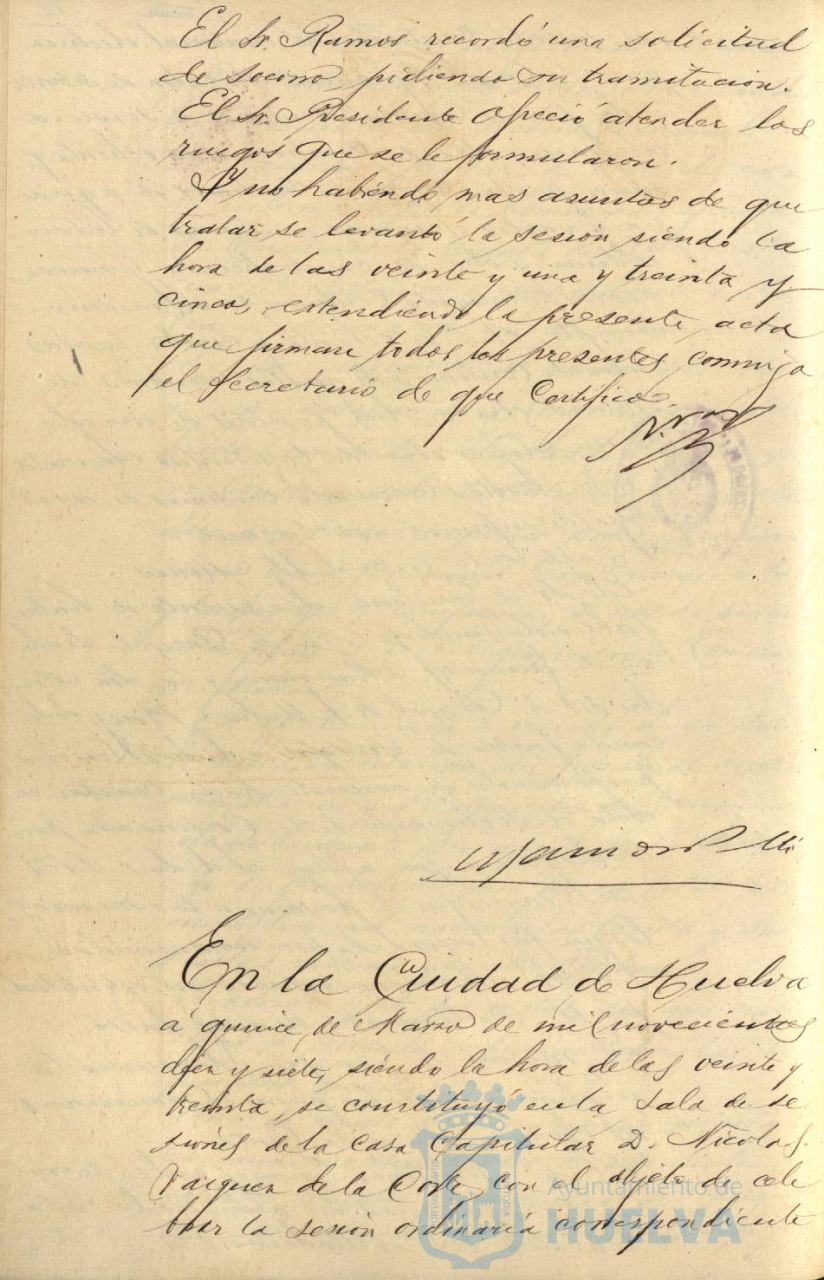 El Sr. Ramos recordó una solicitud
de socorro, pidiendo su tramitacion.
El Sr. Presidente ofreció atender los
ruegos que se le formularon.
Y no habiendo mas asuntos de que
tratar se levantó la sesión siendo la
hora de las veinte y una y treinta y
cinco, extendiendo la presente, acta
que firman todos los presentes, conmigo
el Secretario de que Certifico.
En la Ciudad de Huelva
á quince, de Marzo de mil novecientos
diez y siete, siendo la hora de las veinte y
treinta, se constituyó en la Sala de se
siones de la Casa Capitular D. Nicolas
Vazquez de la Corte, con el objeto de cele
brar la sesión ordinaria correspondiente
Ayuntamiento de
HUELVA